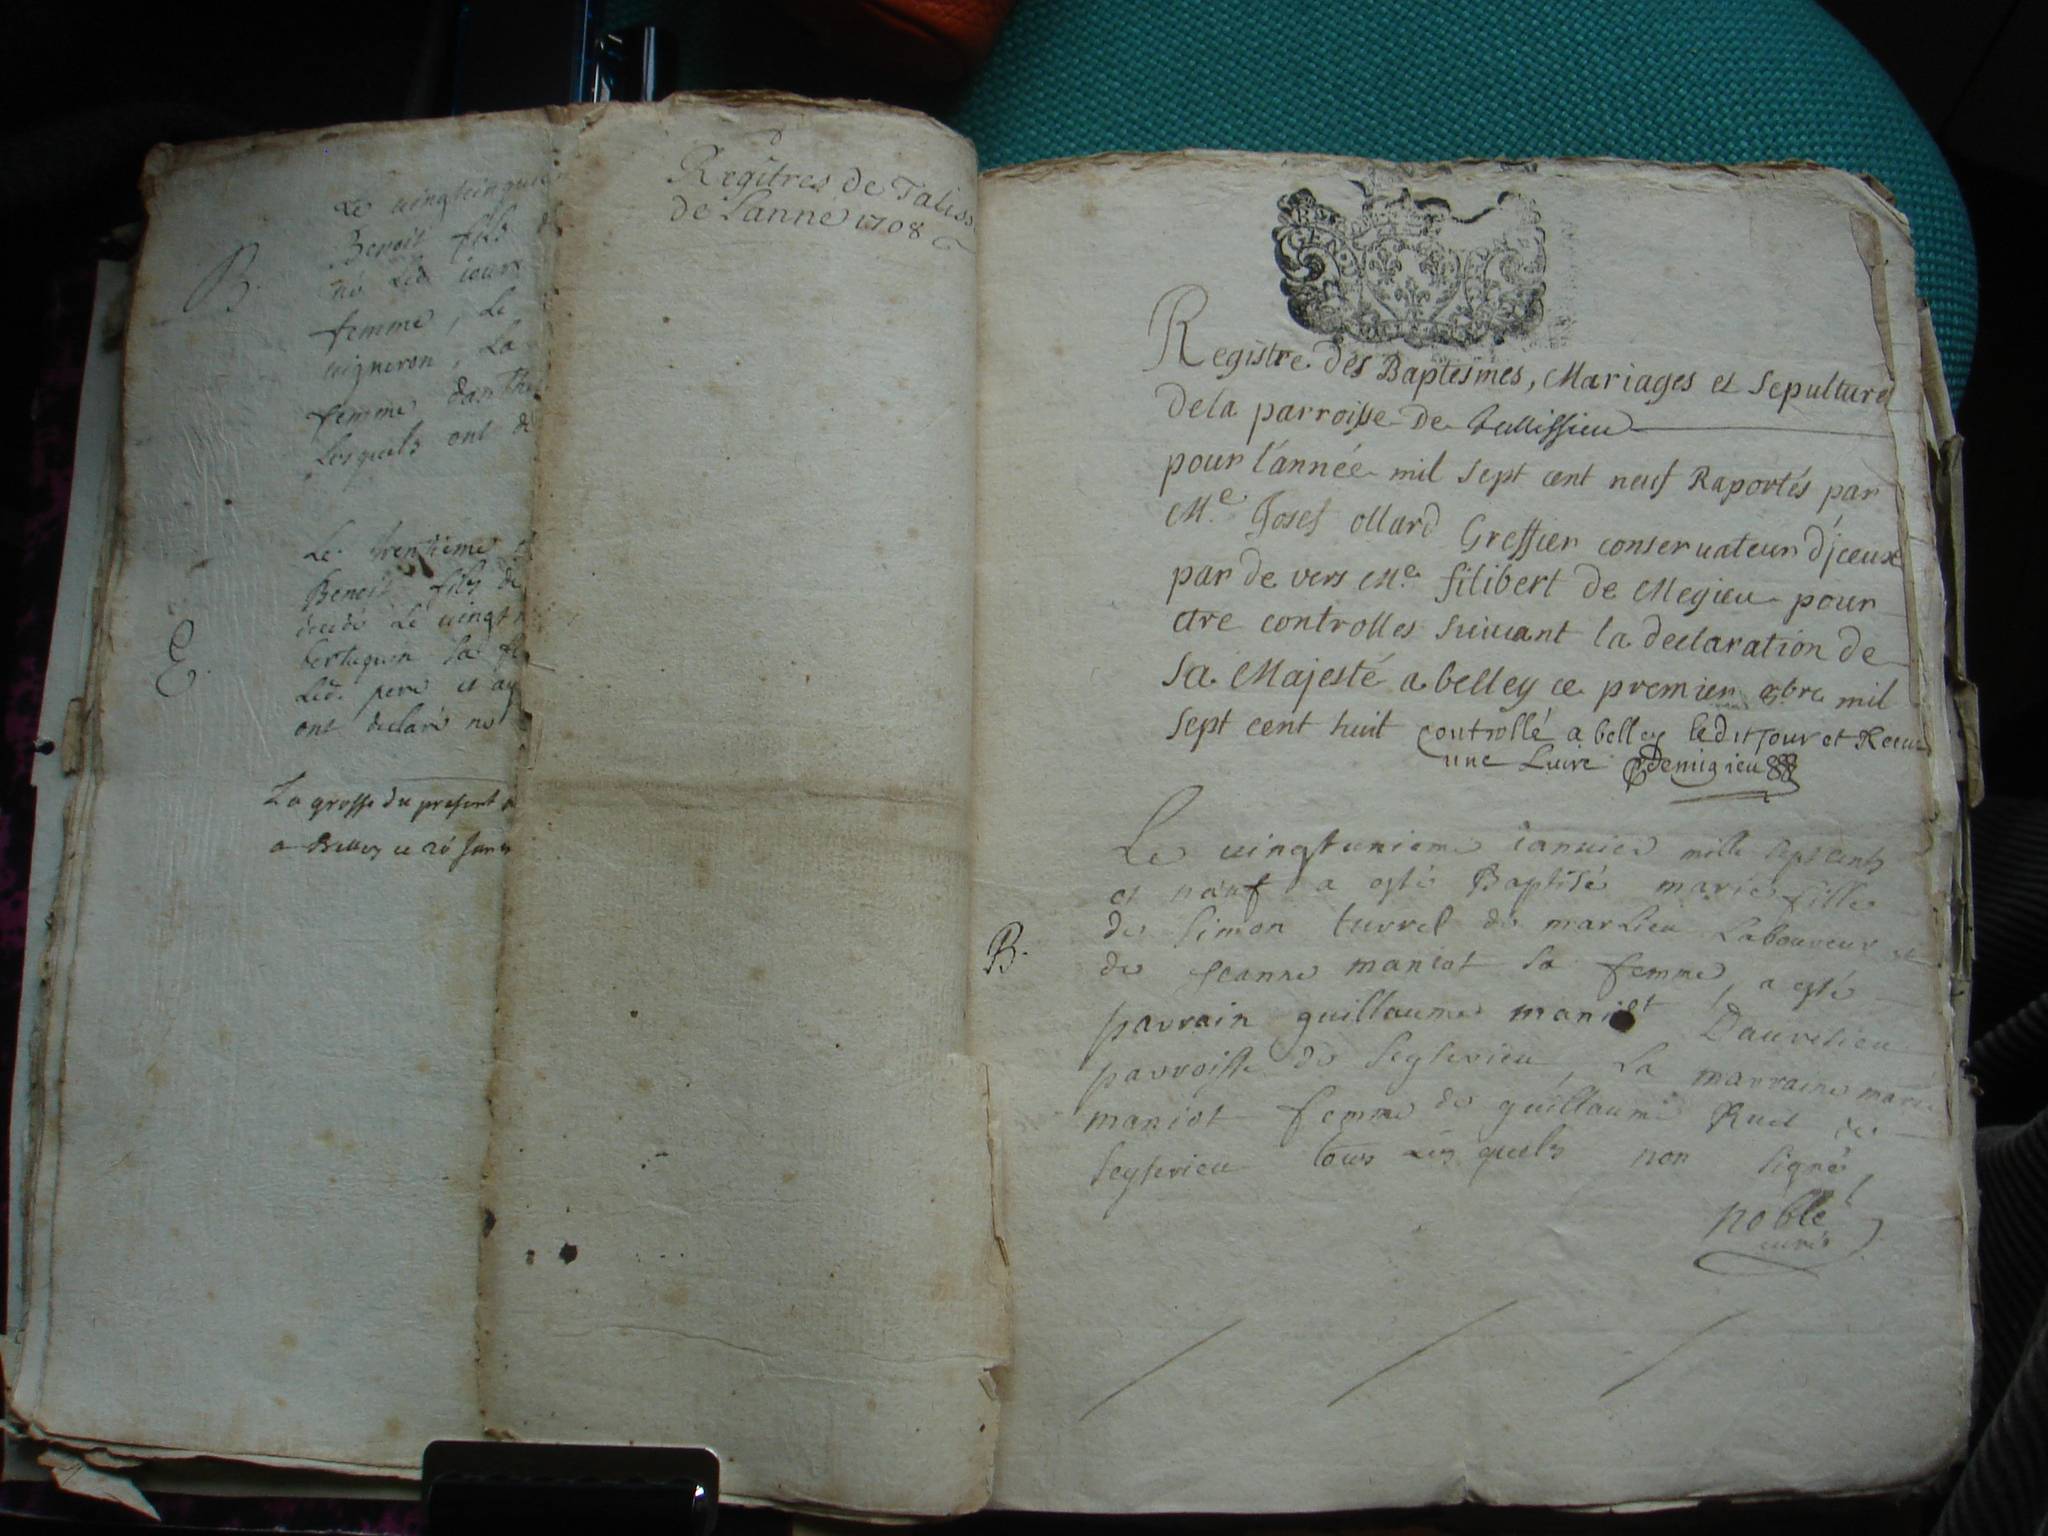 Le vingtcinquie
Benoit fils d
né Led jour
femme, Le
vigneron, La
femme danth
Lesquels ont d
B.
Le trentieme
Benoit fils de
decedé Le vingt
bertuquin sa f
Led. pere et ay
ont declaré no
E.
La grosse du present
a Belley ce 20 Janv
Regîtres de Taliss
de Lanne 1708
Registre des Baptesmes, Mariages et Sepulture
dela parroisse De tallissieu
pour l'année mil sept cent neuf Raportés par
Me. Josef ollard Greffier conservateur d'jceux
par de vers Me. filibert de Megieu pour
etre controlles suiuant la declaration de
sa Majesté a belley ce premier 9bre mil
sept cent huit controllé a belley ledit Jour et Receu
une Livre Demigieu
Le vingtunieme ianvier mille septcents
et neuf a esté Baptisé marie fille
de Simon turrel de marlieu Laboureur et
de Jeanne maniot sa femme, a esté
B.
parrain guillaume maniot Daurelieu
parroisse de Seyserieu, La marraine marie
maniot femme de guillaume Ruet de
Seyserieu tous Lesquels non signé
noble
curé